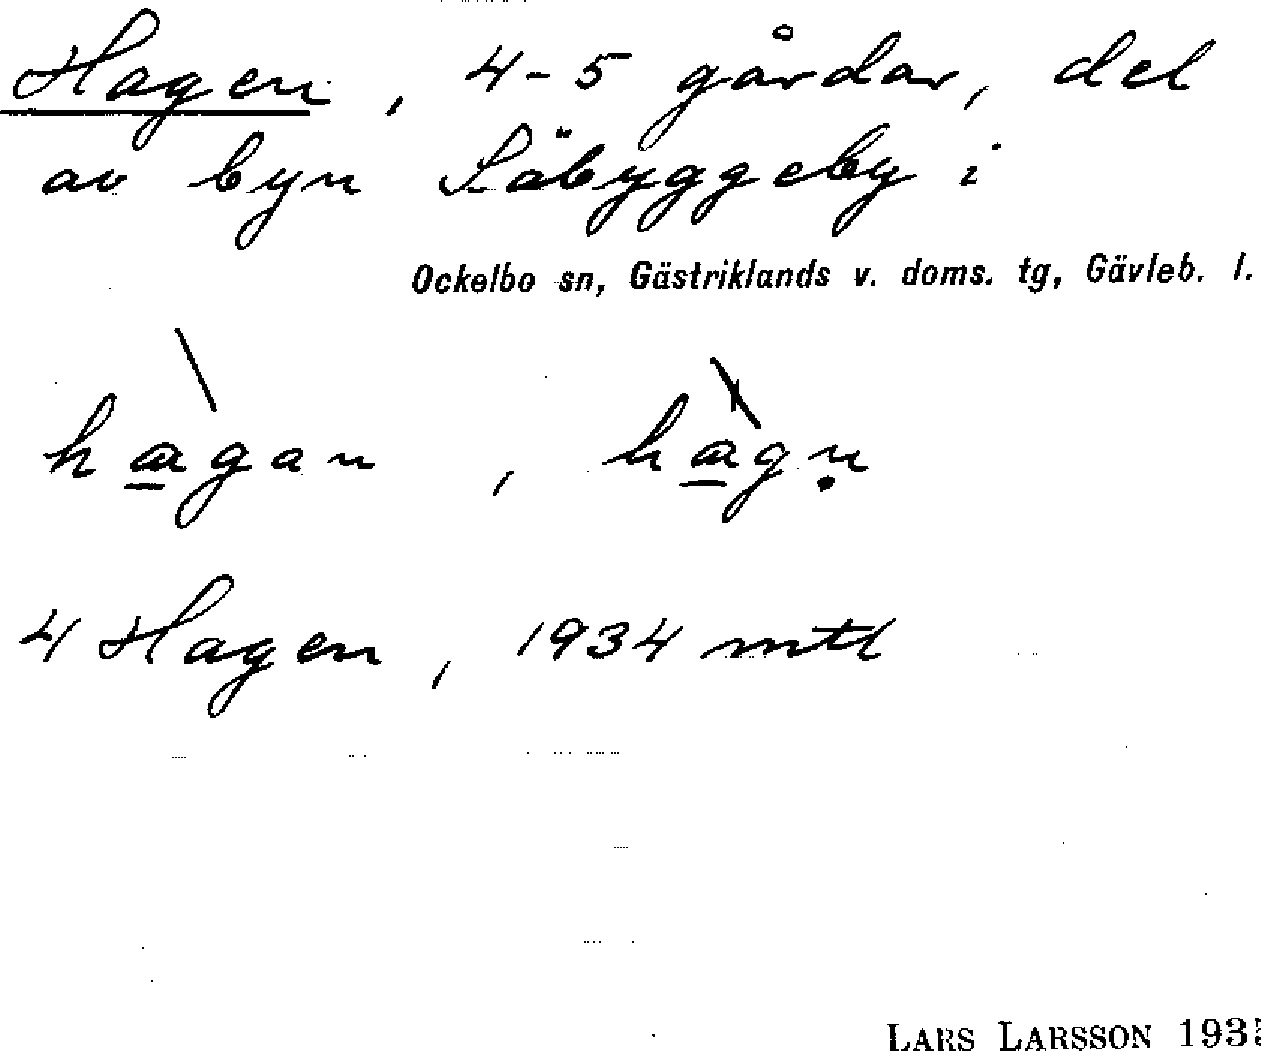 Hagen, 4-5 gårdar, del
av byn Säbyggeby i
Ockelbo sn, Gästriklands v. doms. tg, Gävleb. l.
hagan, hagṇ
4 Hagen, 1934 mtl
LARS LARSSON 193